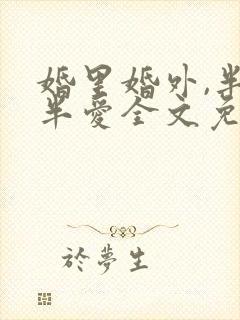 婚里婚外,半
半愛全文免
於夢生